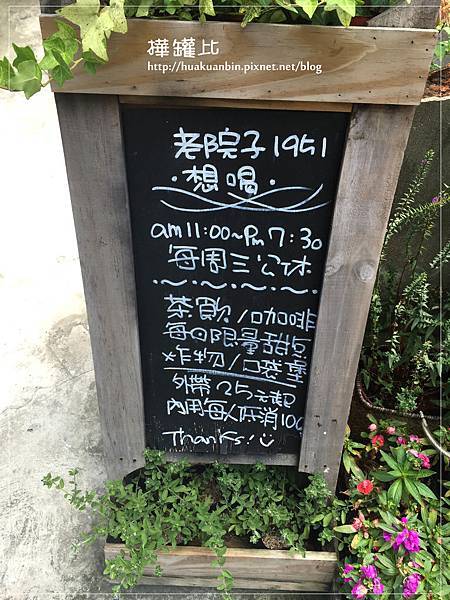 樺罐比
http://huakuanbin.pixnet.net/blog
老院子1951
·想喝·
am11:00~Pm7:30
每周三公休
茶飲/咖啡
每日限量甜
炸物/口袋堡
外帶25元起
內用每人低消100
Thanks!